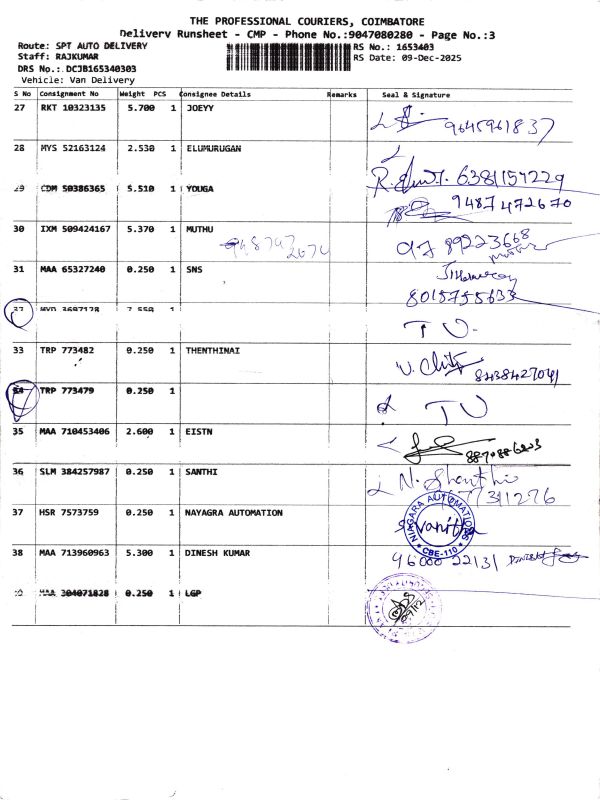 THE PROFESSIONAL COURIERS, COIMBATORE
Delivery Runsheet - CMP - Phone No.:9047080280 - Page No.:3
Route: SPT AUTO DELIVERY
RS No.: 1653403
Staff: RAJKUMAR
RS Date: 09-Dec-2025
DRS No.: DCJB165340303
Vehicle: Van Delivery
S No Consignment No Weight PCS Consignee Details Remarks Seal & Signature
27 RKT 10323135 5.700 1 JOEYY
9645961837
28 MYS 52163124 2.530 1 ELUMURUGAN
6381157229
29 CDM 50386365 5.510 1 YOUGA
9487472670
30 IXM 509424167 5.370 1 MUTHU
8922366
31 MAA 65327240 0.250 1 SNS
8015755633
32 1
TU
33 TRP 773482 0.250 1 THENTHINAI
8438427041
34 TRP 773479 0.250 1
TU
35 MAA 710453406 2.600 1 EISTN
36 SLM 384257987 0.250 1 SANTHI
N. Shanthi
77311276
37 HSR 7573759 0.250 1 NAYAGRA AUTOMATION
NIAGARA AUTOMATIONS
Vanitha
CBE-110
38 MAA 713960963 5.300 1 DINESH KUMAR
9600022131
MAA 304071828 0.250 1 LGP